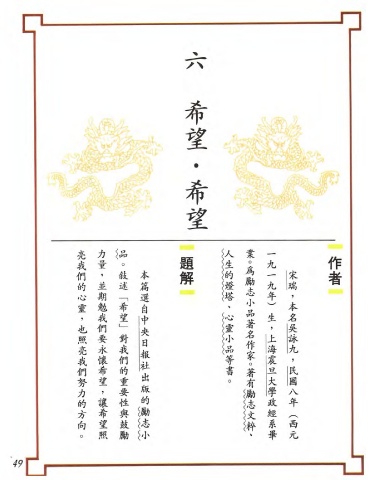 六　希望・希望
作者
宋瑞，本名吳詠九，民國八年（西元
一九一九年）生，上海震旦大學政經系畢
業。為勵志小品著名作家。著有勵志文粹、
人生的燈塔、心靈小品等書。
題解
本篇選自中央日報社出版的勵志小
品。敍述「希望」對我們的重要性與鼓勵
力量，並期勉我們要永懷希望，讓希望照
亮我們的心靈，也照亮我們努力的方向。
49